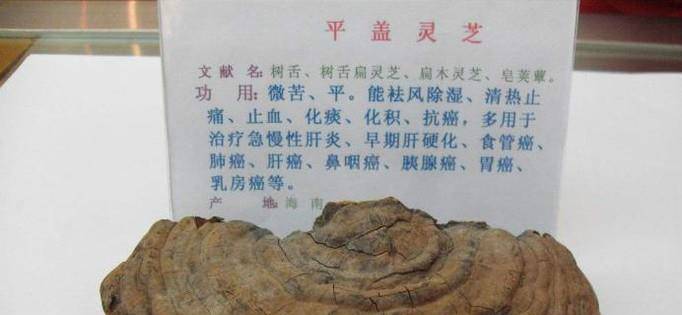 平盖灵芝
文献名:树舌、树舌扁灵芝、扁木灵芝、皂荚蕈。
功用:微苦、平。能祛风除湿、清热止
痛、止血、化痰、化积、抗癌，多用于
治疗急慢性肝炎、早期肝硬化、食管癌、
肺癌、肝癌、鼻咽癌、胰腺癌、胃癌、
乳房癌等。
产地:海南